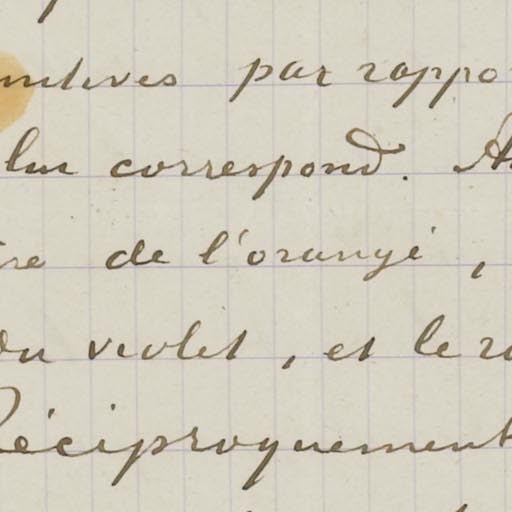 par rappo
lui correspond. A
re de l'orangé,
du violet, et le ro
Réciproquement